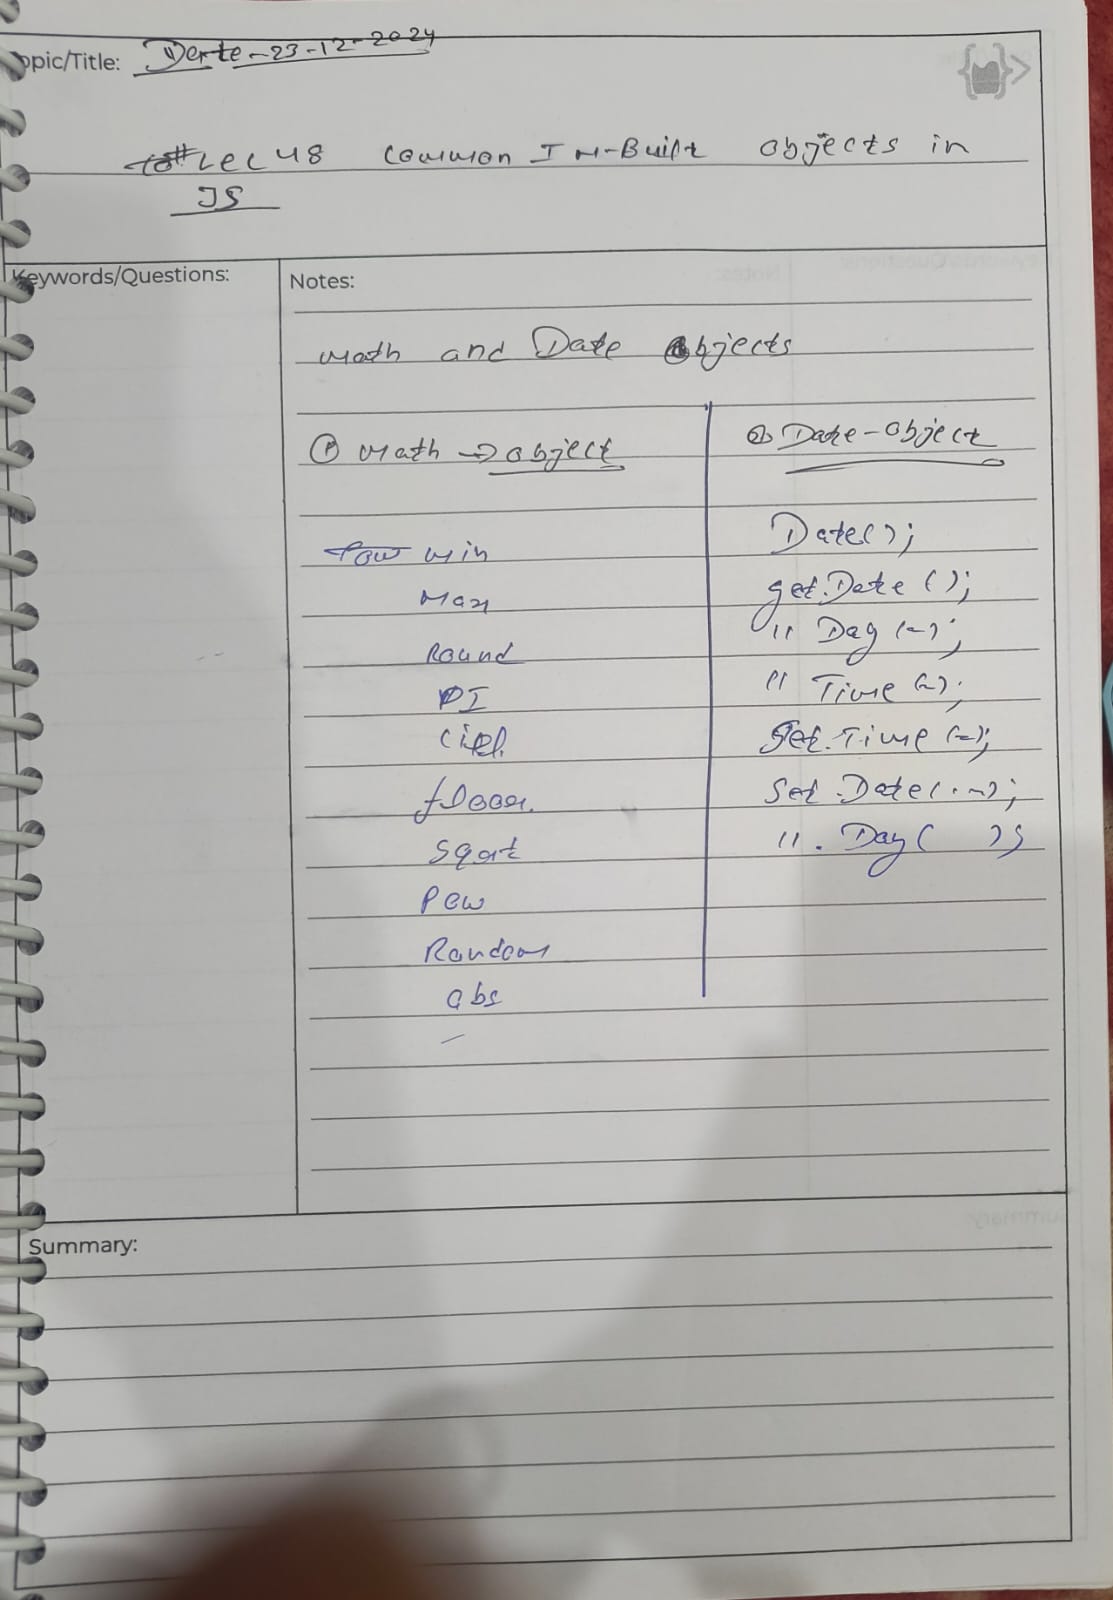 Topic/Title: Date - 23-12-2024
# Lec 48 Common In-Built Objects in
JS
Keywords/Questions:
Notes:
Math and Date Objects
① Math → object
② Date - Object
Pow min
Max
Round
PI
Ciel
floor
Sqrt
Pow
Random
abs
Date();
get.Date ();
" Day (-);
" Time (-);
Set.Time (-);
Set.Date(.-);
" . Day( );
Summary: